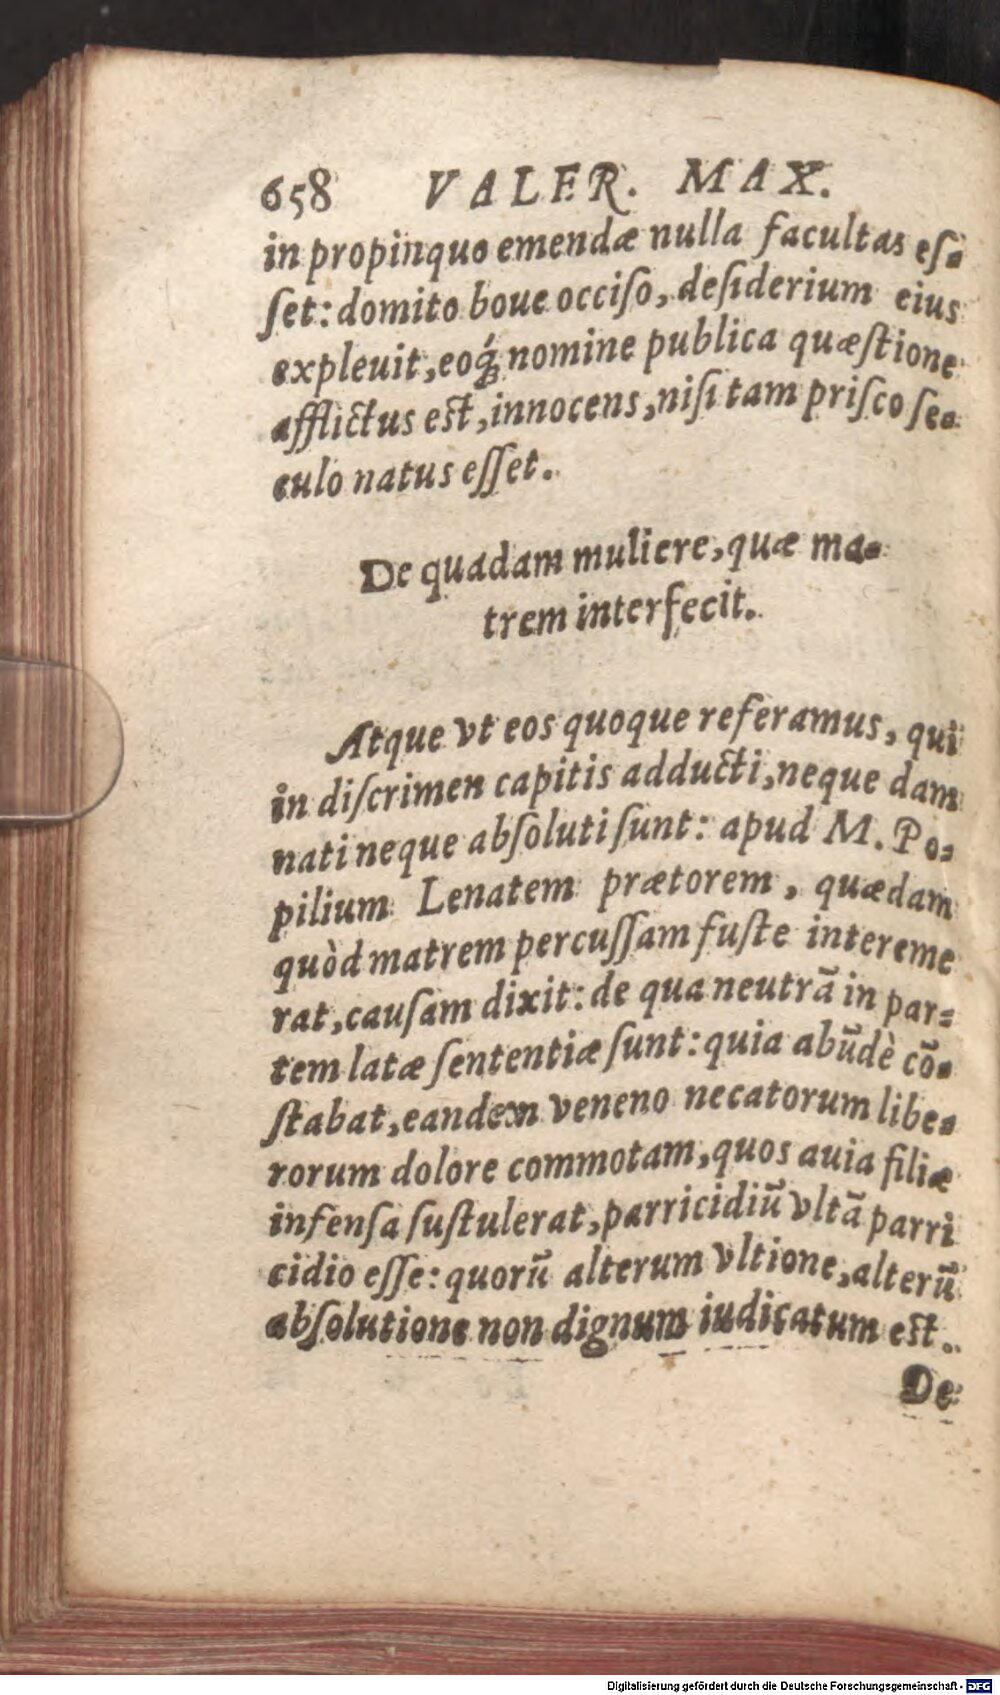 658 VALER. MAX.
in propinquo emendæ nulla facultas eſ⸗
ſet: domito boue occiſo, deſiderium eius
expleuit, eoq́; nomine publica quæſtione
afflictus eſt, innocens, niſi tam priſco ſe⸗
culo natus eſſet.
De quadam muliere, quæ ma⸗
trem interfecit.
Atque vt eos quoque referamus, qui
in diſcrimen capitis adducti, neque dam
nati neque abſoluti ſunt: apud M. Po⸗
pilium Lenatem prætorem, quædam
quòd matrem percuſſam fuſte intereme
rat, cauſam dixit: de qua neutrā in par⸗
tem latæ ſententiæ ſunt: quia abūdè cō⸗
ſtabat, eandem veneno necatorum libe⸗
rorum dolore commotam, quos auia filiæ
infenſa ſuſtulerat, parricidiū vltā parri
cidio eſſe: quorū alterum vltione, alterū
abſolutione non dignum iudicatum eſt.
De
Digitalisierung gefördert durch die Deutsche Forschungsgemeinschaft - DFG